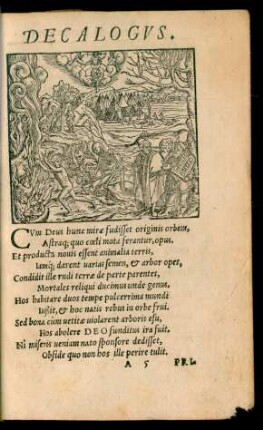 DECALOGVS.
CVm Deus hunc miræ fudisset originis orbem,
Astraq; quo cœli mota ferantur, opus.
Et producta nouis essent animalia terris,
Iamq; darent uarias semen, & arbor opes,
Condidit ille rudi terræ de parte parentes,
Mortales reliqui ducimus unde genus.
Hos habitare duos tempe pulcerrima mundi
Iussit, & hoc natis rebus in orbe frui.
Sed bona cum uetitæ uiolarent arboris esu,
Hos abolere DEO funditus ira fuit.
Ni miseris ueniam nato sponsore dedisset,
Obside quo non hos ille perire tulit.
A 5 PRI.